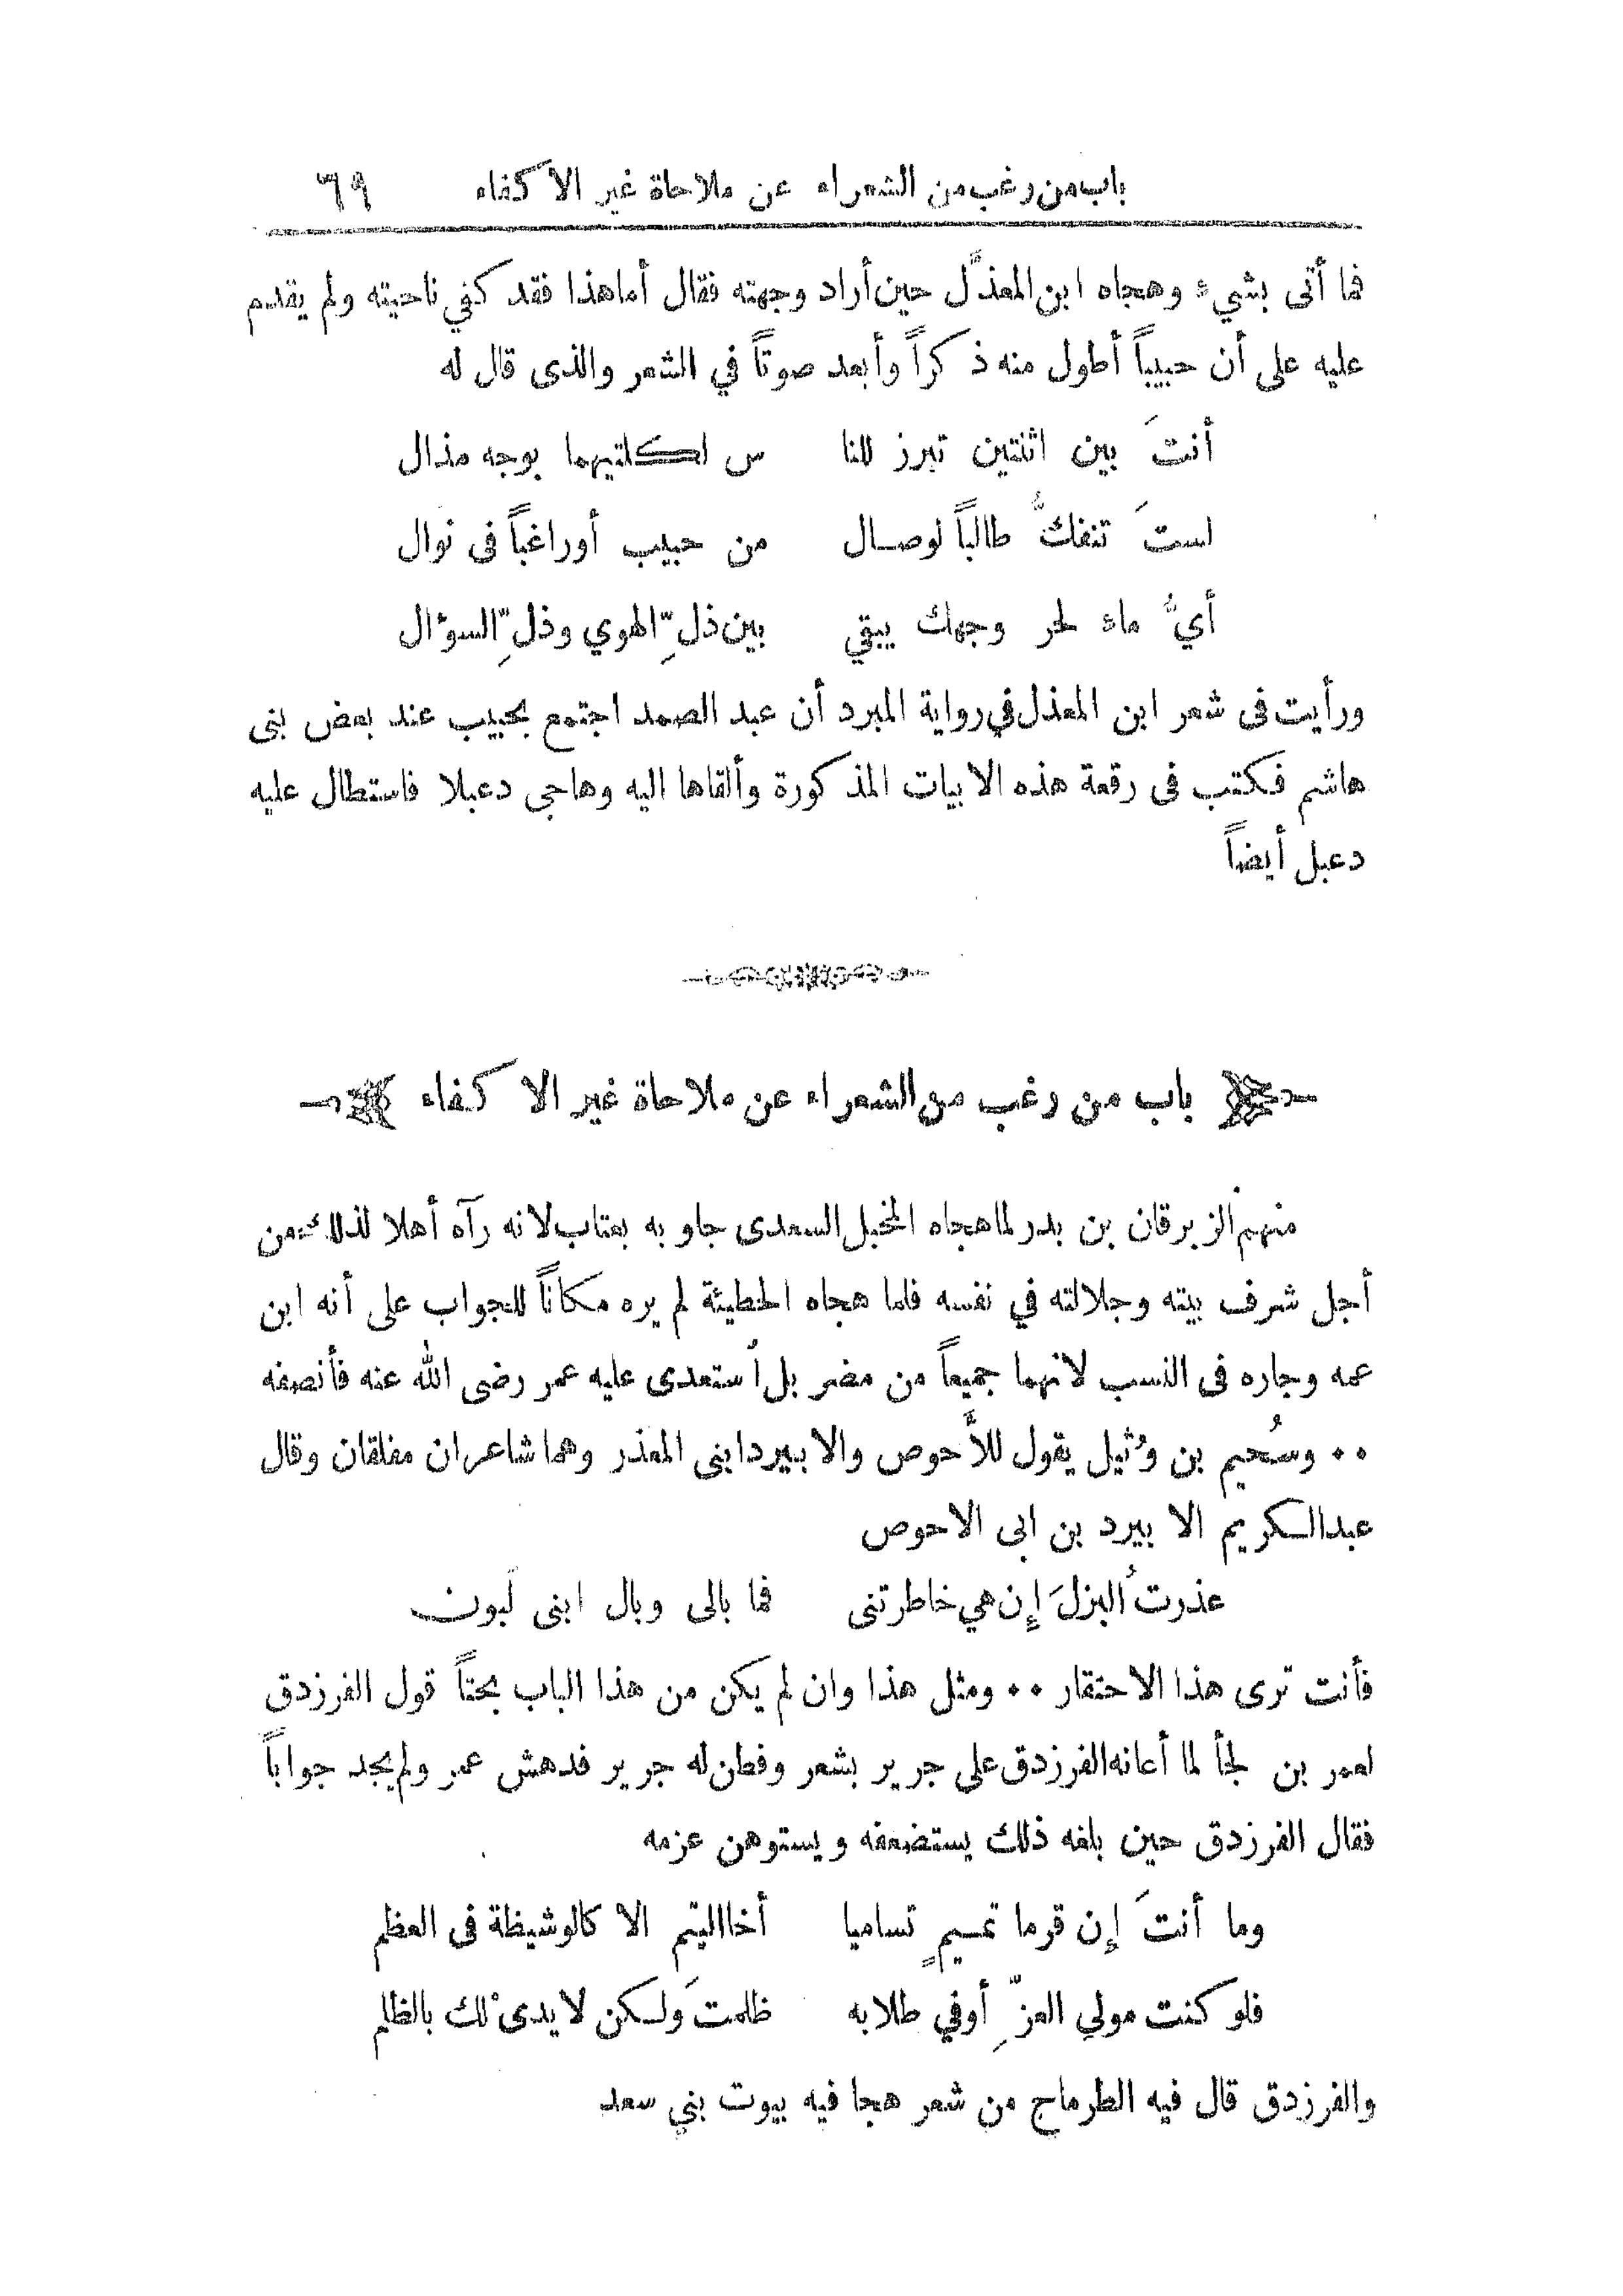 باب من رغب من الشعراء عن ملاحاة غير الاكفاء ٦٩
فما أتى بشيء وهجاه ابن المعذَّل حين أراد وجهته فقال أما هذا فقد كفي ناحيته ولم يقدم
عليه على أن حبيباً أطول منه ذكراً وأبعد صوتاً في الشعر والذى قال له
أنتَ بين اثنتين تبرز للنا س لكلتيهما بوجه مذال
لستَ تنفكُّ طالباً لوصـال من حبيب أوراغباً فى نوال
أيُّ ماء لحر وجهك يبقي بين ذلِّ الهوي وذلِّ السؤال
ورأيت فى شعر ابن المعذل في رواية المبرد أن عبد الصمد اجتمع بحبيب عند بعض بنى
هاشم فكتب فى رقعة هذه الابيات المذكورة وألقاها اليه وهاجى دعبلا فاستطال عليه
دعبل أيضاً
باب من رغب من الشعراء عن ملاحاة غير الاكفاء
منهم الزبرقان بن بدر لما هجاه المخبل السعدى جاوبه بعتاب لانه رآه أهلا لذلك من
أجل شرف بيته وجلالته في نفسه فلما هجاه الحطيئة لم يره مكاناً للجواب على أنه ابن
عمه وجاره فى النسب لانهما جميعاً من مضر بل أستعدى عليه عمر رضى الله عنه فأنصفه
٠٠ وسُحيم بن وُثيل يقول للأَحوص والابيرد ابنى المعذر وهما شاعران مفلقان وقال
عبدالكريم الابيرد بن ابى الاحوص
عذرتُ البزلَ إن هي خاطرتنى فما بالى وبال ابنى لَبون
فأنت ترى هذا الاحتقار ٠٠ ومثل هذا وان لم يكن من هذا الباب بحتاً قول الفرزدق
لعمر بن لجأ لما أعانه الفرزدق على جرير بشعر وفطن له جرير فدهش عمر ولم يجد جواباً
فقال الفرزدق حين بلغه ذلك يستضعفه ويستوهن عزمه
وما أنتَ إن قرما تميمٍ تساميا أخا اليتم الا كالوشيظة فى العظم
فلو كنت مولي العزِّ أوفي طلابه ظلمتَ ولكن لا يدىْ لك بالظلم
والفرزدق قال فيه الطرماح من شعر هجا فيه بيوت بني سعد